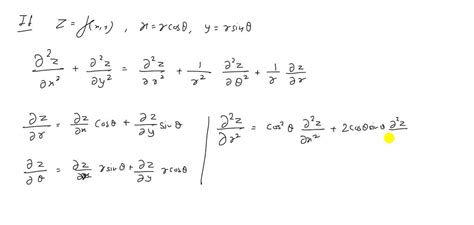 If z = f(x,y) , x = r cosθ , y = r sinθ
∂²z/∂x² + ∂²z/∂y² = ∂²z/∂r² + 1/r² ∂²z/∂θ² + 1/r ∂z/∂r
∂z/∂r = ∂z/∂x cosθ + ∂z/∂y sinθ
∂z/∂θ = ∂z/∂x r sinθ + ∂z/∂y r cosθ
∂²z/∂r² = cos²θ ∂²z/∂x² + 2cosθ sinθ ∂²z/∂